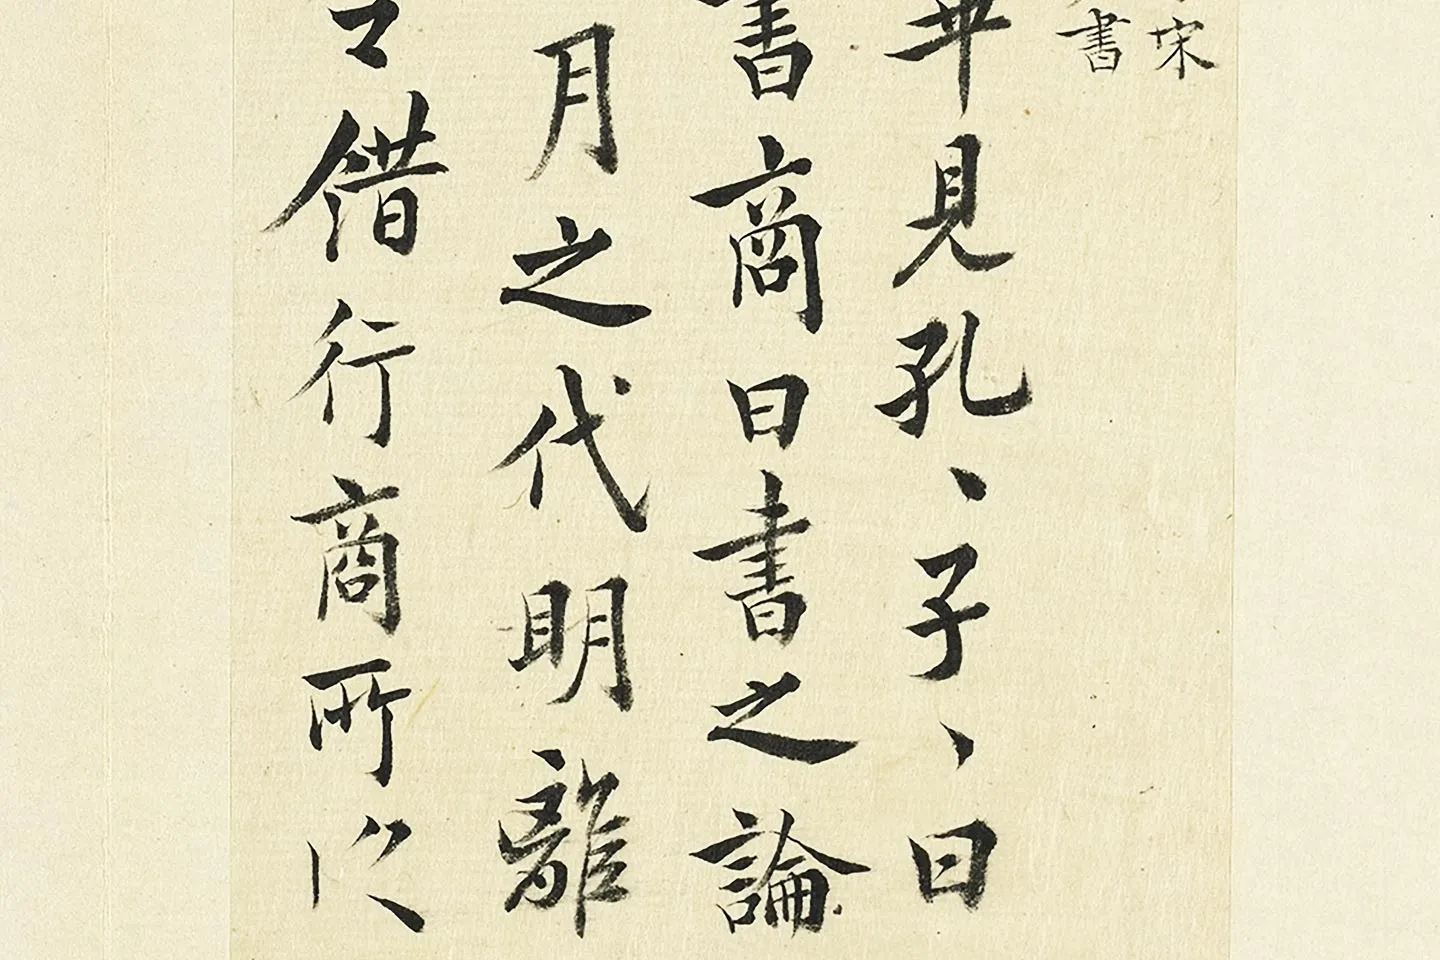 宋
書
畢見孔、子、曰
書商曰書之論
月之代明離
錯行商所以